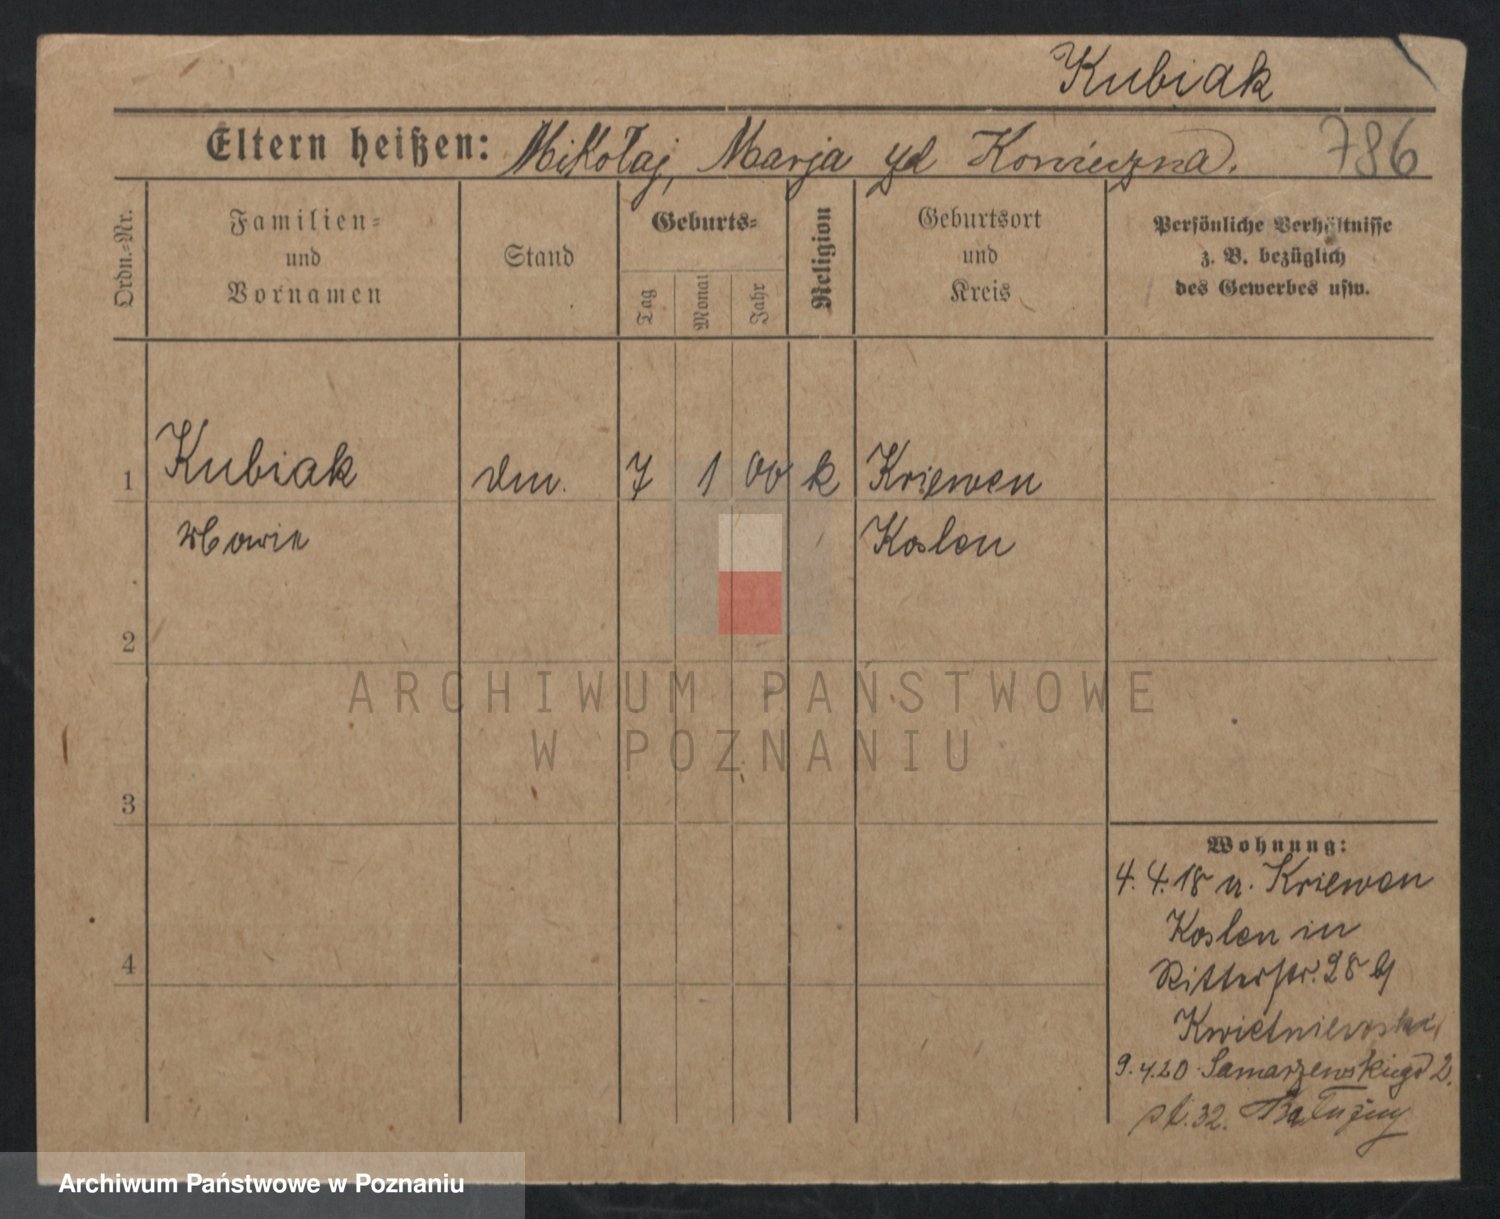 Kubiak
Eltern heißen: Mikołaj, Marja zd Konieczna. 786
Ordn.-Nr.
Familien- und Vornamen
Stand
Geburts-
Tag
Monat
Jahr
Religion
Geburtsort und Kreis
Persönliche Verhältnisse z. B. bezüglich des Gewerbes usw.
1 Kubiak 7 1 00 k Kriewen
Kosten
2
3
4
Wohnung:
4. 4. 18 v. Kriewen
Kosten in
Ritterstr. 28 b
Kwietniewski
9.4.20 Samarzewskiego 2.
ARCHIWUM PAŃSTWOWE
W POZNANIU
Archiwum Państwowe w Poznaniu